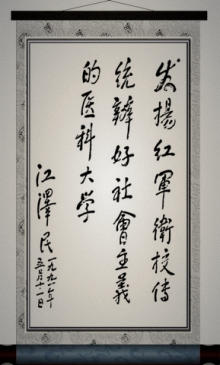 发揚红軍衛校传
统辦好社會主義
的医科大学
江澤民
一九九一年
五月十一日